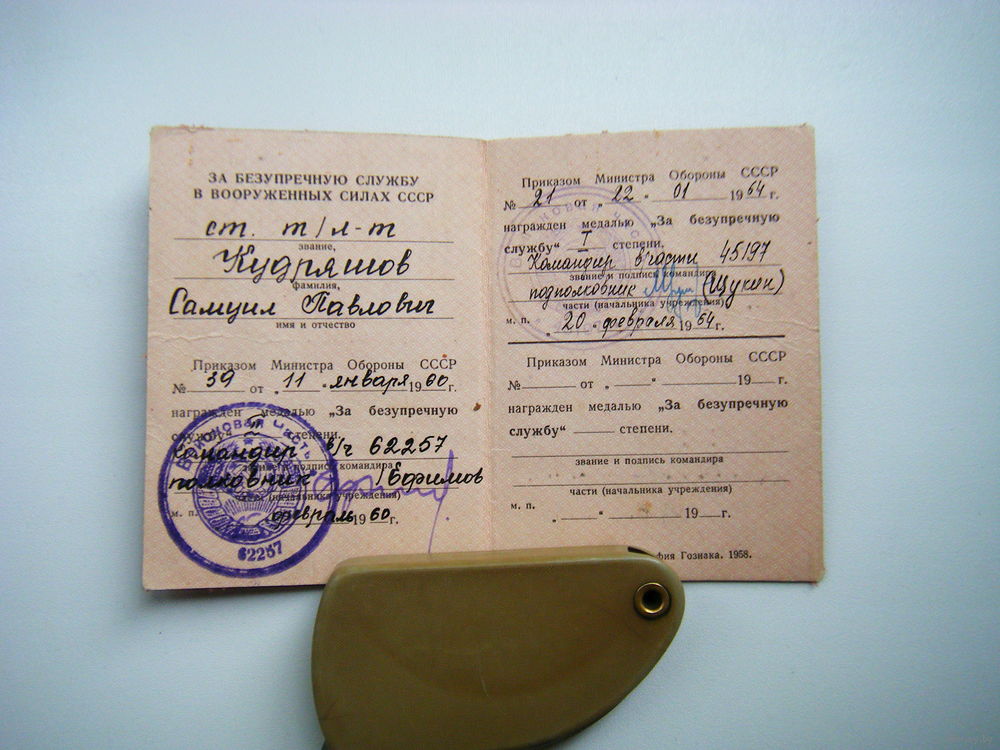 ЗА БЕЗУПРЕЧНУЮ СЛУЖБУ
В ВООРУЖЕННЫХ СИЛАХ СССР
ст. т/л-т
звание,
Кудряшов
фамилия,
Самуил Павлович
имя и отчество
Приказом Министра Обороны СССР
№ 39 от „11“ января 1960 г.
награжден медалью „За безупречную
службу“ степени.
Командир в/ч 62257
звание и подпись командира
полковник /Ефимов
части (начальника учреждения)
м. п. февраль 1960 г.
ВОЙСКОВАЯ ЧАСТЬ
62257
Приказом Министра Обороны СССР
№ 21 от „22“ 01 1964 г.
награжден медалью „За безупречную
службу“ I степени.
Командир в/части 45197
звание и подпись командира
подполковник (Щукин)
части (начальника учреждения)
м. п. „20“ февраля 1964 г.
Приказом Министра Обороны СССР
№ от „ “ 19 г.
награжден медалью „За безупречную
службу“ степени.
звание и подпись командира
части (начальника учреждения)
м. п.
„ “ 19 г.
фия Гознака. 1958.